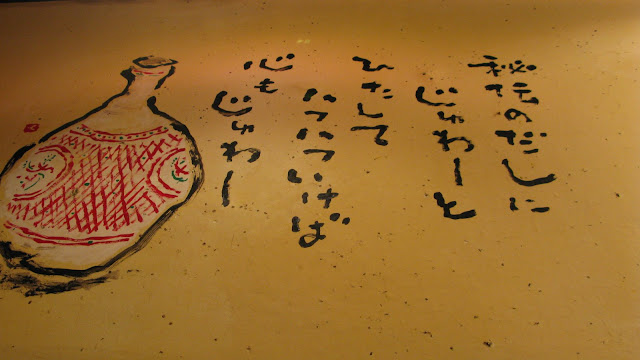 秘伝のだしに
じゅわーと
ひたして
つっつけば
心も
じゅわー